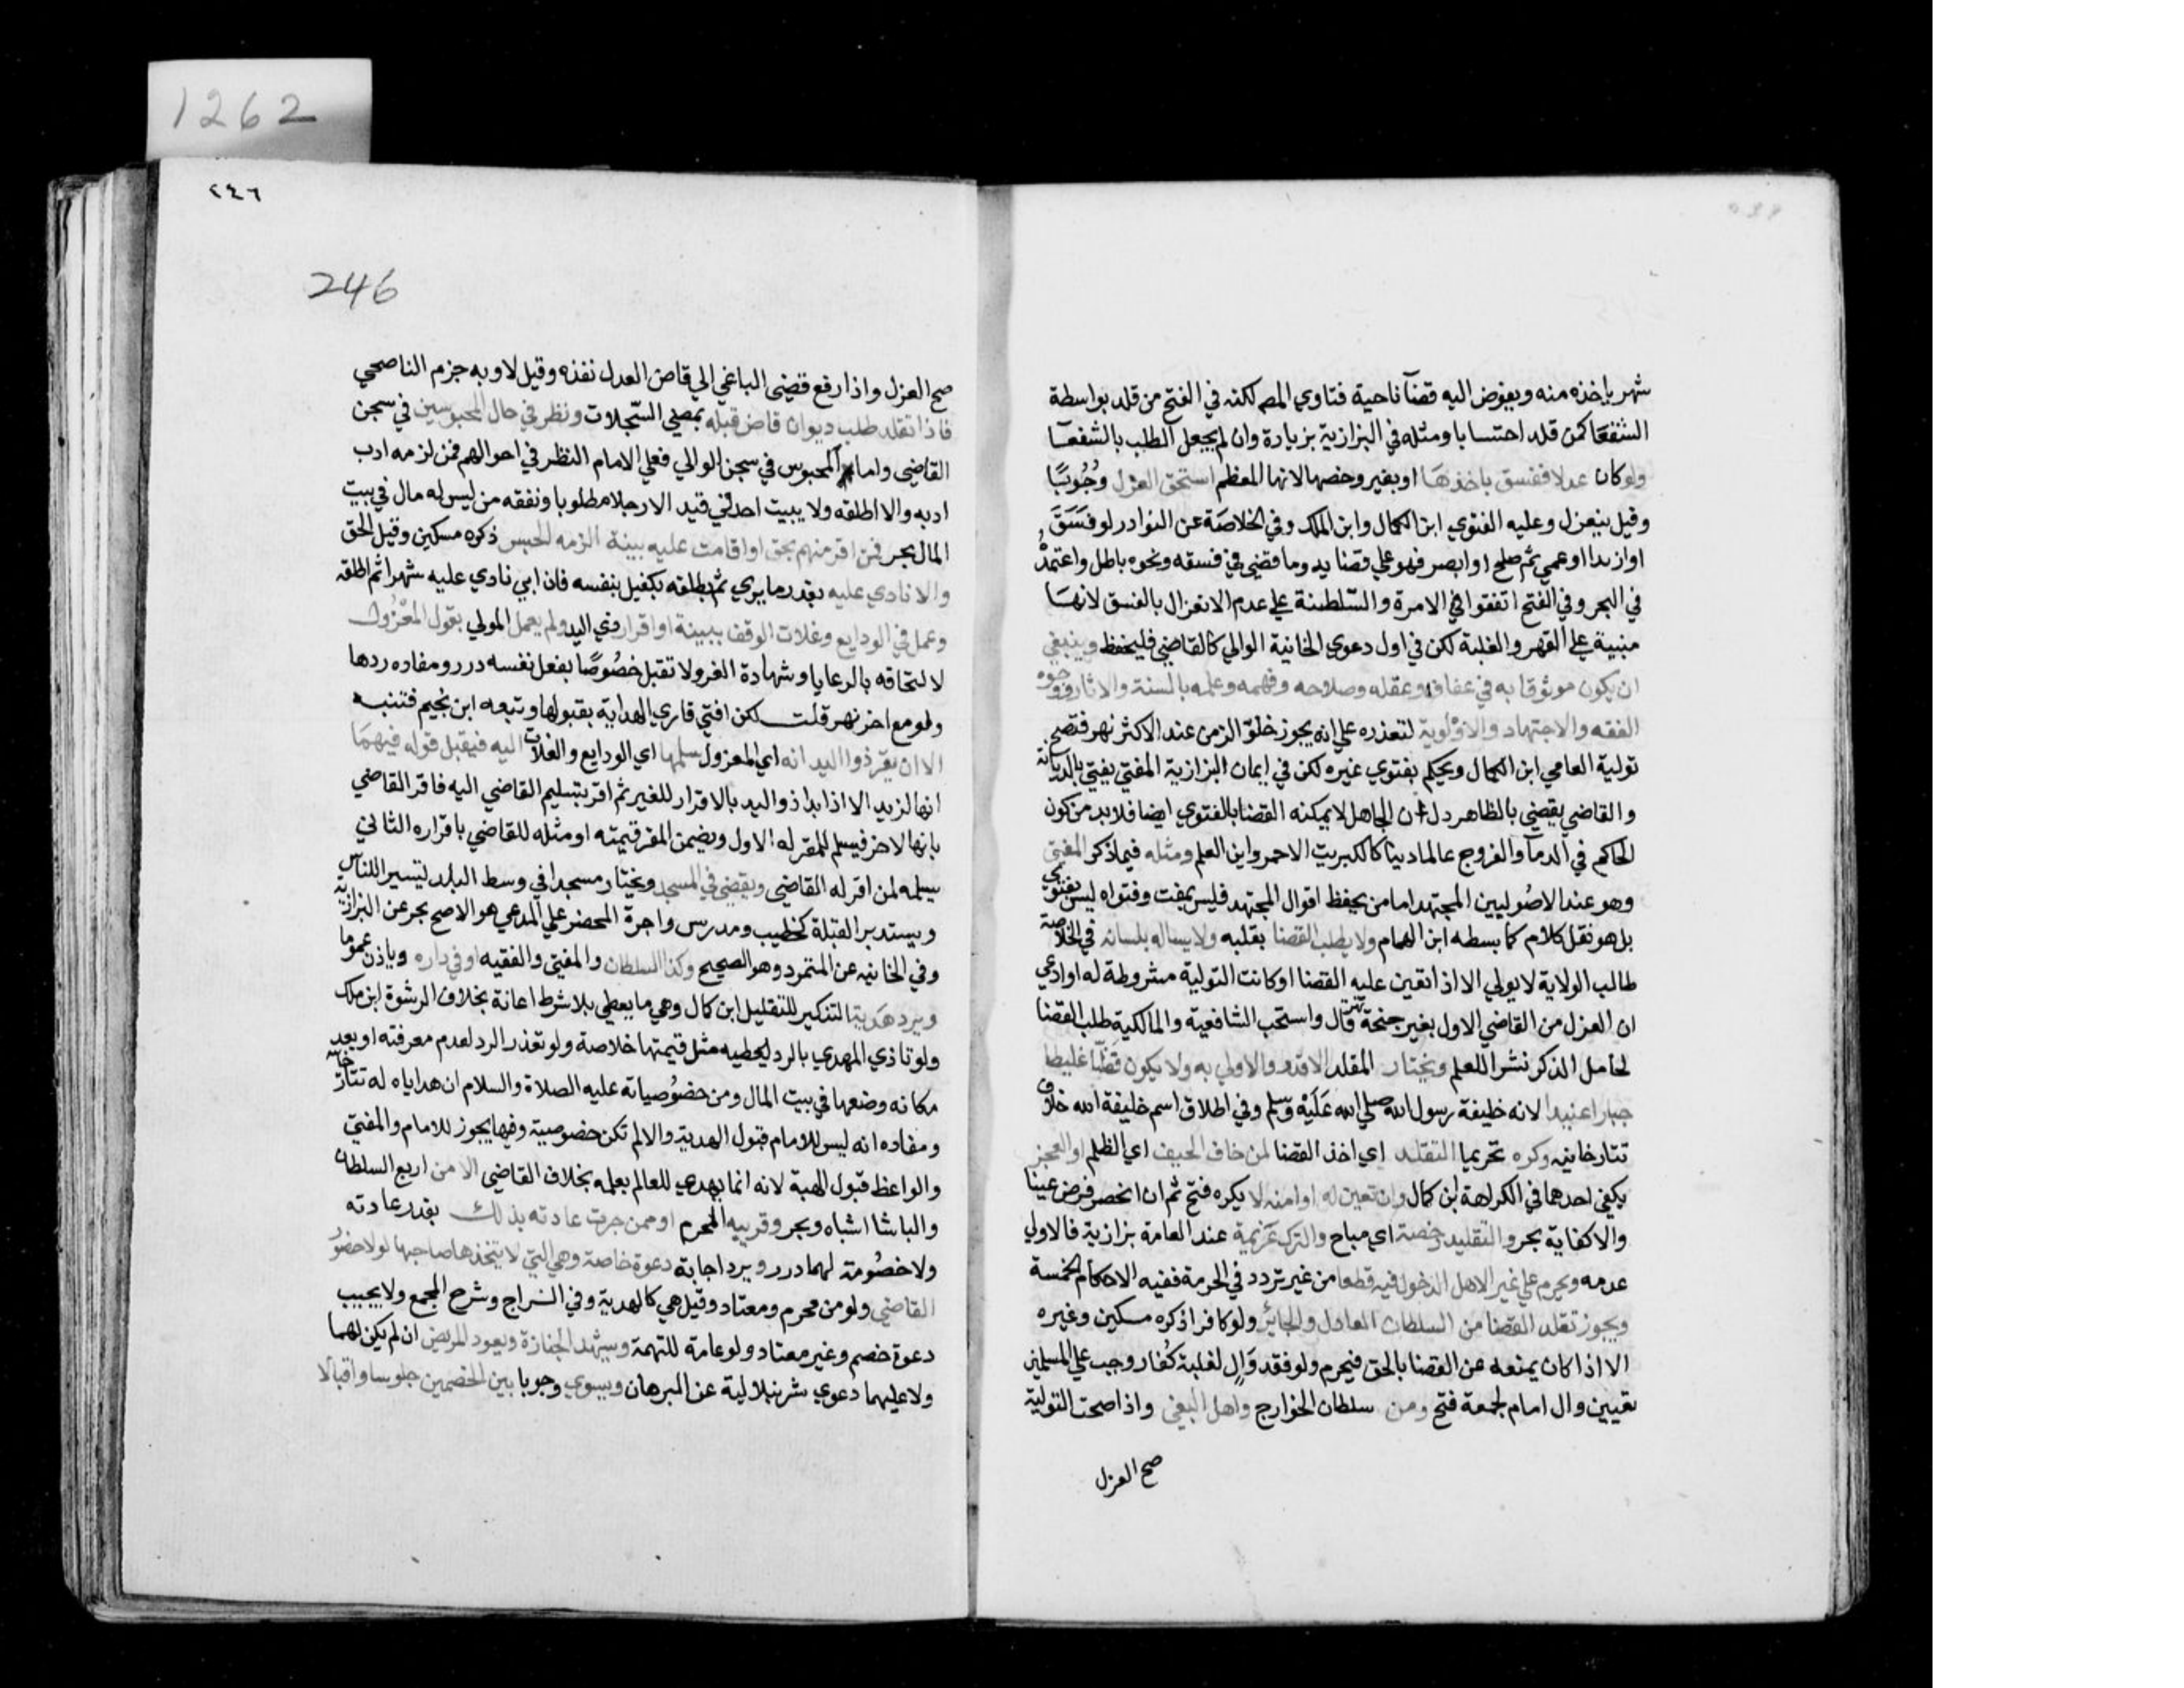 شهر ياخذه منه ويفوض اليه قضآ ناحية فتاوي المص لكنه في الفتح من قلد بواسطة
الشفعا كمن قلد احتسابا ومثله في البزازية بزيادة وان لم يجعل الطلب بالشفعا
ولو كان عدلا ففسق باخذها او بغيره وخصها لانها المعظم استحق العزل وجوبًا
وقيل ينعزل وعليه الفتوي ابن الكمال وابن الملك وفي الخلاصة عن النوادر لو فسق
او ارتدا او عمي ثم صلح او ابصر فهو علي قضايه وما قضي في فسقه ونحوه باطل واعتمده
في البحر وفي الفتح اتفقوا في الامرة والسلطنة علي عدم الانعزال بالفسق لانها
مبنية علي القهر والغلبة لكن في اول دعوي الخانية الوالي كالقاضي فليحفظ وينبغي
ان يكون موثوقا به في عفافه وعقله وصلاحه وفهمه وعلمه بالسنة والاثار ووجوه
الفقه والاجتهاد والاولوية لتعذره علي انه يجوز خلو الزمن عند الاكثر نهر فتصح
تولية العامي ابن الكمال ويحكم بفتوي غيره لكن في ايمان البزازية المفتي يفتي بالديانة
والقاضي يقضي بالظاهر دل ان الجاهل لا يمكنه القضا بالفتوي ايضا فلابد من كون
الحاكم في الدمآ والفروج عالما دينا كالكبريت الاحمر واين العلم ومثله فيما ذكر المفتي
وهو عند الاصوليين المجتهد اما من يحفظ اقوال المجتهد فليس بمفت وفتواه ليس بفتوي
بل هو نقل كلام كما بسطه ابن الهمام ولا يطلب القضا بقلبه ولا يساله بلسانه في الخلاصة
طالب الولاية لا يولي الا اذا تعين عليه القضا او كانت التولية مشروطة له او ادعي
ان العزل من القاضي الاول بغير جنحة نهر قال واستحب الشافعية والمالكية طلب القضا
لخامل الذكر نشر اللعلم ويختار المقلد الاقدر والاولي به ولا يكون فظًا غليظا
جبارا عنيدا لانه خليفة رسول الله صلي الله عليه وسلم وفي اطلاق اسم خليفة الله خلاف
تتارخانيه وكره تحريما التقلد اي اخذ القضا لمن خاف الحيف اي الظلم او العجز
يكفي احدهما في الكراهة ابن كمال وان تعين له او امنه لا يكره فتح ثم ان انحصر فرض عينا
والا كفاية بحر والتقليد رخصة اي مباح والترك عزيمة عند العامة بزازية فالاولي
عدمه ويحرم علي غير الاهل الدخول فيه قطعا من غير تردد في الحرمة ففيه الاحكام الخمسة
ويجوز تقلد القضا من السلطان العادل والجائر ولو كافرا ذكره مسكين وغيره
الا اذا كان يمنعه عن القضا بالحق فيحرم ولو فقد وال لغلبة كفار وجب علي المسلمين
تعيين وال امام لجمعة فتح ومن سلطان الخوارج واهل البغي واذا صحت التولية
صح العزل
1262
٢٤٦
246
صح العزل واذا رفع قضي الباغي الي قاض العدل نفذه وقيل لا وبه جزم الناصحي
فاذا تقلد طلب ديوان قاض قبله بمعني السجلات ونظر في حال المحبوسين في سجن
القاضي واما المحبوس في سجن الوالي فعلي الامام النظر في احوالهم فمن لزمه ادب
ادبه والا اطلقه ولا يبيت احد في قيد الا رجلا مطلوبا ونفقه من ليس له مال في بيت
المال بحر فمن اقر منهم بحق او اقامت عليه بينة الزمه الحبس ذكره مسكين وقيل الحق
والا نادي عليه بقدر ما يري ثم يطلقه بكفيل بنفسه فان ابي نادي عليه شهرا ثم اطلقه
وعمل في الودايع وغلات الوقف ببينة او اقرار ذي اليد ولم يعمل المولي بقول المعزول
لالتحاقه بالرعايا وشهادة الفرد لا تقبل خصوصًا بفعل نفسه درر ومفاده ردها
ولو مع اخر نهر قلت لكن افتي قاري الهداية بقبولها وتبعه ابن نجيم فتنبه
الا ان يقر ذوا اليد انه اي المعزول سلمها اي الودايع والغلات اليه فيقبل قوله فيهما
انها لزيد الا اذا بدا ذو اليد بالاقرار للغير ثم اقر بتسليم القاضي اليه فاقر القاضي
بانها لاخر فيسلم للمقر له الاول ويضمن المقر قيمته او مثله للقاضي باقراره الثاني
يسلمه لمن اقر له القاضي ويقضي في المسجد ويختار مسجدا في وسط البلد تيسير اللناس
ويستدبر القبلة كخطيب ومدرس واجرة المحضر علي المدعي هو الاصح بحر عن البزازية
وفي الخانيه عن المتمرد وهو الصحيح وكذا السلطان والمفتي والفقيه او في داره وياذن عموما
ويرد هدية التنكير للتقليل ابن كمال وهي ما يعطي بلا شرط اعانة بخلاف الرشوة ابن ملك
ولو تاذي المهدي بالرد ليعطيه مثل قيمتها خلاصة ولو تعذر الرد لعدم معرفته او بعد
مكانه وضعها في بيت المال ومن خصوصياته عليه الصلاة والسلام ان هداياه له تتارخانية
ومفاده انه ليس للامام قبول الهدية والا لم تكن خصوصية وفيها يجوز للامام والمفتي
والواعظ قبول الهبة لانه انما يهدي للعالم بعلمه بخلاف القاضي الا من اربع السلطان
والباشا اشباه وبحر وقريبه المحرم او ممن جرت عادته بذلك بقدر عادته
ولا خصومة لهما درر ويرد اجابة دعوة خاصة وهي التي لا يتخذها صاحبها لولا حضور
القاضي ولو من محرم ومعتاد وقيل هي كالهدية وفي السراج وشرح المجمع ولا يجيب
دعوة خصم وغير معتاد ولو عامة للتهمة ويشهد الجنازة ويعود المريض ان لم يكن لهما
ولا عليهما دعوي شرنبلالية عن البرهان ويسوي وجوبا بين الخصمين جلوسا واقبالا